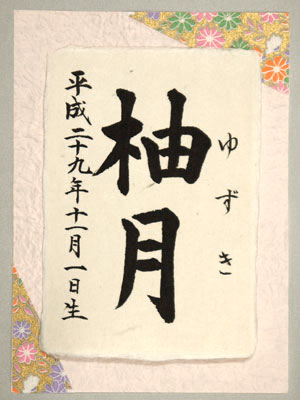 ゆずき
柚月
平成二十九年十一月一日生